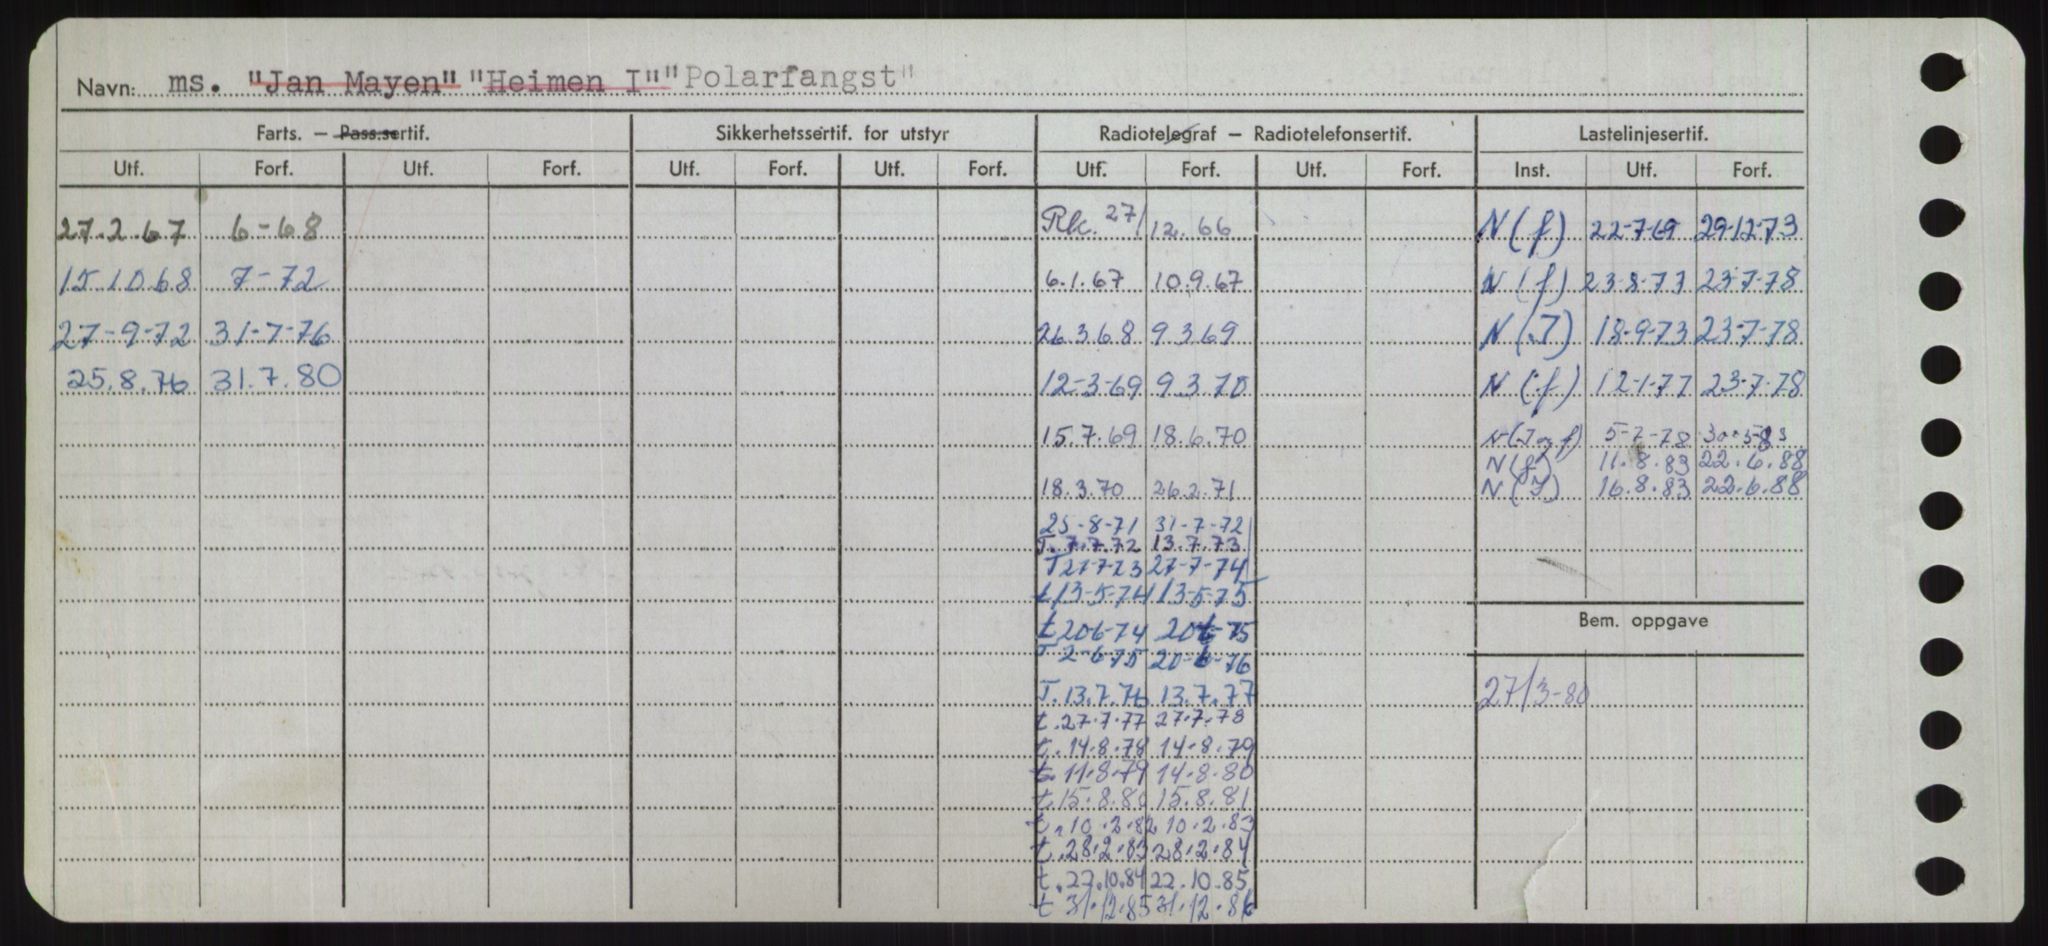 Navn: ms. "Jan Mayen" "Heimen I" "Polarfangst"
Farts. — Pass.sertif. Sikkerhetssertif. for utstyr Radiotelegraf — Radiotelefonsertif. Lastelinjesertif.
Utf. Forf. Utf. Forf. Utf. Forf. Utf. Forf. Utf. Forf. Utf. Forf. Inst. Utf. Forf.
27.2.67 6-68 Rk. 27/12.66 N(f) 22-7-69 29-12-73
15.10.68 7-72 6.1.67 10.9.67 N(f) 23-8-77 23-7-78
27-9-72 31-7-76 26.3.68 9.3.69 N(I) 18-9-73 23-7-78
25.8.76 31.7.80 12-3-69 9.3.70 N(f) 12-1-77 23-7-78
15.7.69 18.6.70 N(I og f) 5-7-78 30-5-83
N(f) 11.8.83 22.6.88
18.3.70 26.2.71 N(I) 16.8.83 22.6.88
25-8-71 31-7-72
T. 7.7.72 13.7.73
T 27-7-73 27-7-74
t 13-5-74 13-5-75
t 20-6-74 20-6-75
T 2-6-75 20-6-76
Bem. oppgave
T. 13.7.76 13.7.77 27/3-80
t. 27.7.77 27.7.78
t. 14.8.78 14.8.79
t. 11.8.79 14.8.80
t. 15.8.80 15.8.81
t. 10.2.82 10.2.83
t. 28.2.83 28.2.84
t. 22.10.84 22.10.85
t 31.12.85 31.12.86